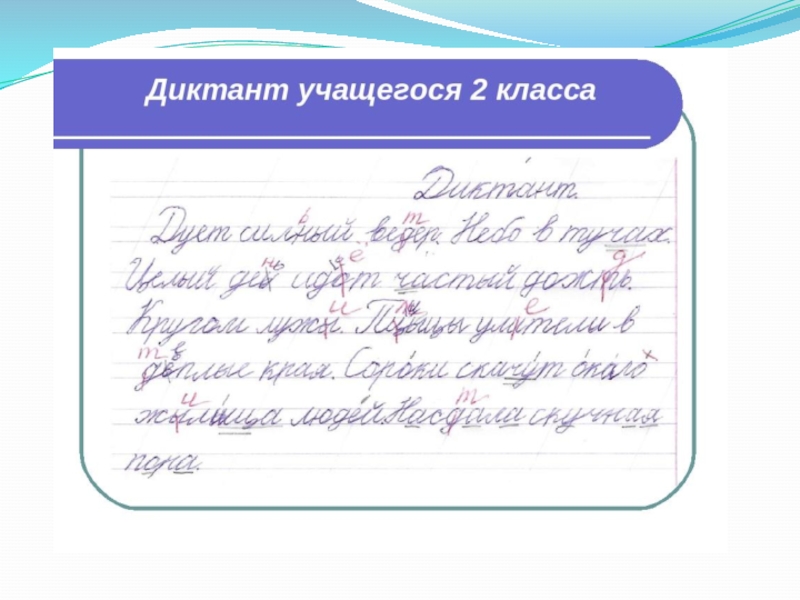 Диктант учащегося 2 класса
Диктант.
Дует силный ведер. Небо в тучах.
Целый дех идот частый дожть.
Кругом лужы. Пцыцы улители в
деплые края. Сороки скачут около
жылыща людей. Насдала скучная
пора.